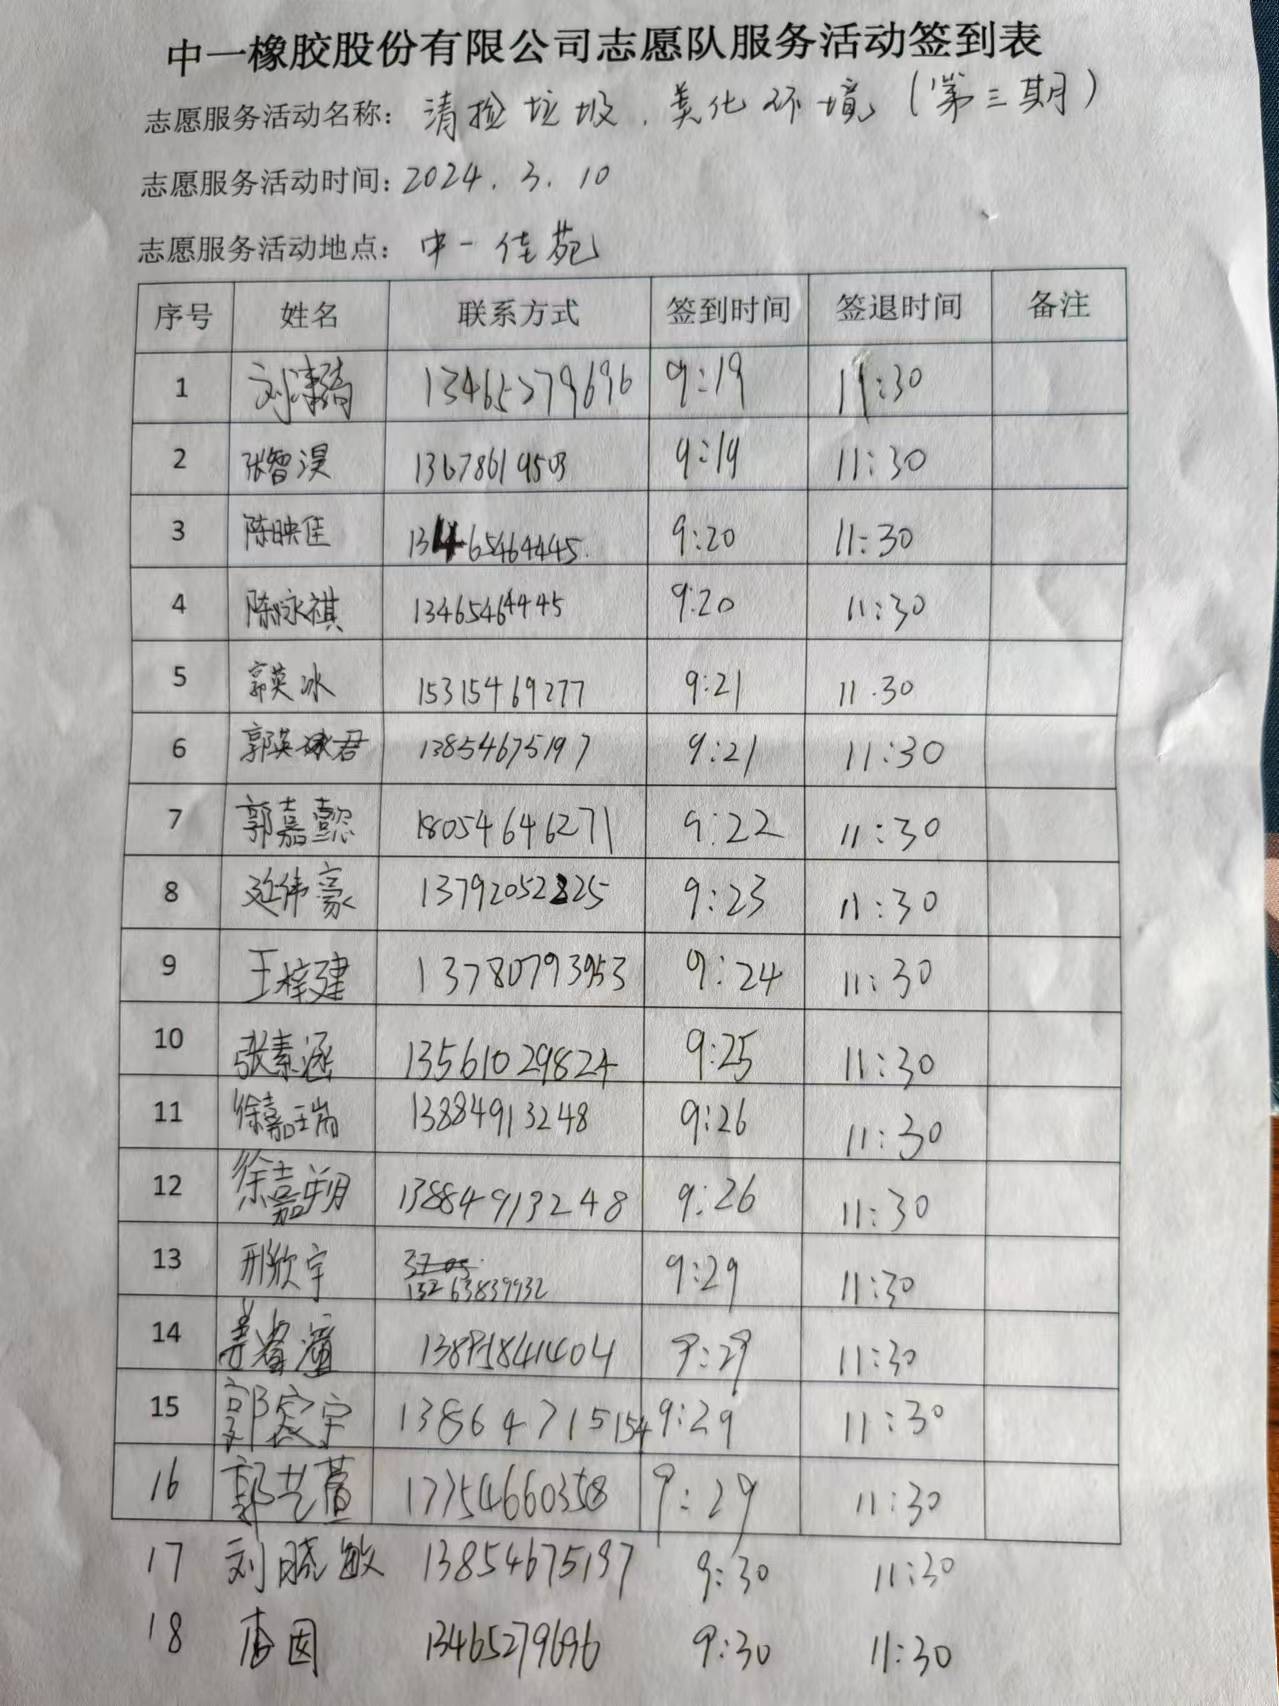 中一橡胶股份有限公司志愿队服务活动签到表
志愿服务活动名称: 清捡垃圾、美化环境(第三期)
志愿服务活动时间: 2024.3.10
志愿服务活动地点: 中一佳苑
序号 姓名 联系方式 签到时间 签退时间 备注
1 刘 13465279696 9:19 11:30
2 张智淏 13678619503 9:19 11:30
3 陈映佳 13465464445. 9:20 11:30
4 陈咏祺 13465464445 9:20 11:30
5 郭英冰 15315469277 9:21 11.30
6 郭英君 13854675197 9:21 11:30
7 郭嘉懿 18054646271 9:22 11:30
8 延伟豪 13792052825 9:23 11:30
9 王梓建 13780793953 9:24 11:30
10 张素涵 13561029824 9:25 11:30
11 徐嘉瑞 13884913248 9:26 11:30
12 徐嘉翊 13884913248 9:26 11:30
13 邢欣宇 13263839932 9:29 11:30
14 9:29 11:30
15 郭宸宇 13864715154 9:29 11:30
16 郭艺萱 17754660358 9:29 11:30
17 刘晓敏 13854675197 9:30 11:30
18 13465279696 9:30 11:30